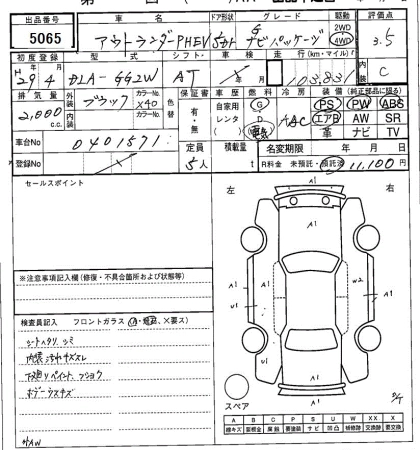 出品番号 車名 ドア形状 グレード 駆動 評価点
5065 アウトランダーPHEV 5ドア G ナビパッケージ 2WD 4WD 3.5
初度登録 型式 シフト 車検 走行(km・マイル) 内装
H29年4月 DLA-GG2W AT X年 月 103,831 C
排気量 外装 カラーNo. 色替 保証書 車歴 燃料 冷房 装備(純正部品に限る)
2,000 c.c. ブラック X40 有・無 自家用 G AAC PS PW ABS
内装 カラーNo. レンタ D エアB AW SR
革 ナビ TV
車台No 0401571 定員 積載量 名変期限 年 月 日
登録No 5人 t R料金 未預託・預託済 11,100円
セールスポイント
左 右
A1
A1
A1 A1
U1 A1 W2
A1
U1 A1
A1
A1
スペア
※注意事項記入欄(修復・不具合箇所および状態等)
検査員記入 フロントガラス(A・飛石、X要ス)
シートヘタリ、シミ
内張汚れキズスレ
下廻りペイント
ボデーウスキズ
外AW
A B C P S U W X XX
線キズ 腐蝕 要塗装 サビ 凹凸 補修跡 交換跡 要交換